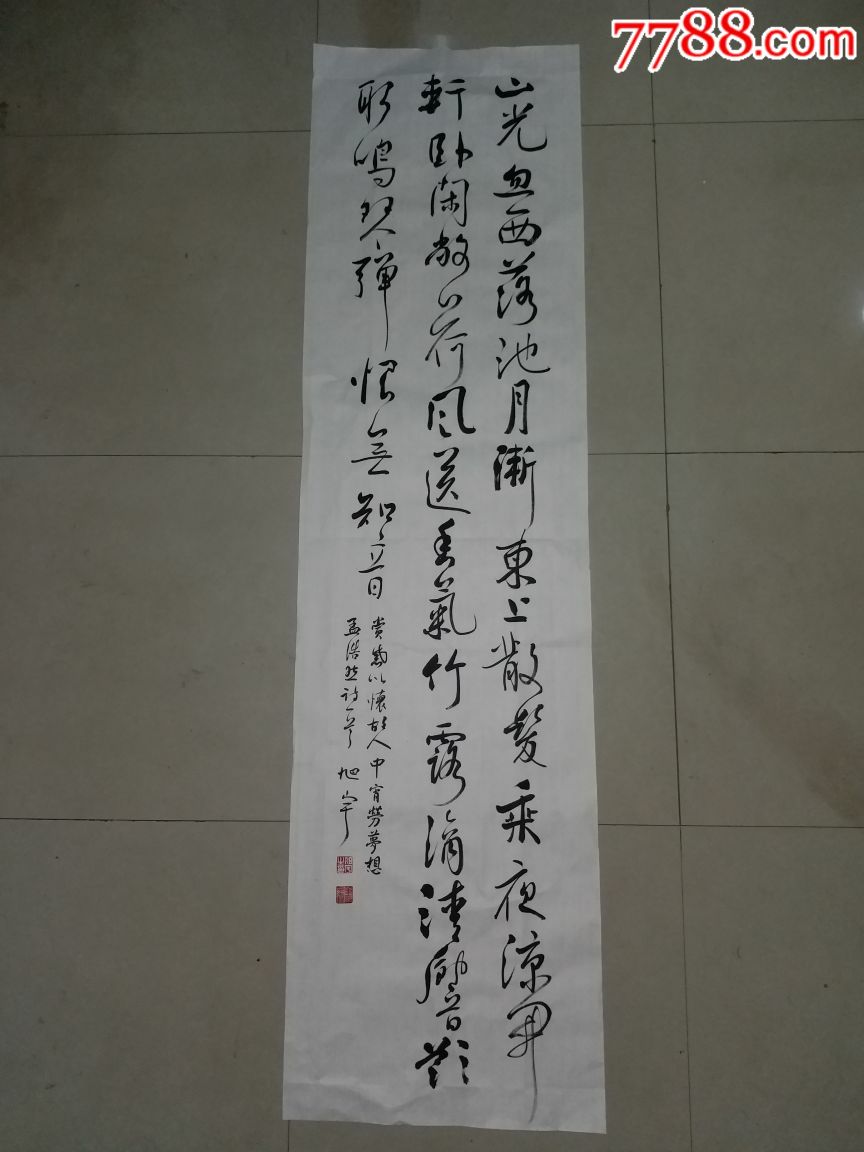 7788.com
山光忽西落池月漸東上散髮乘夜涼開
軒卧閑敞荷風送香氣竹露滴清響欲
取鳴琴彈恨無知音
賞感以懷故人中宵勞夢想
孟浩然诗一首 旭宇